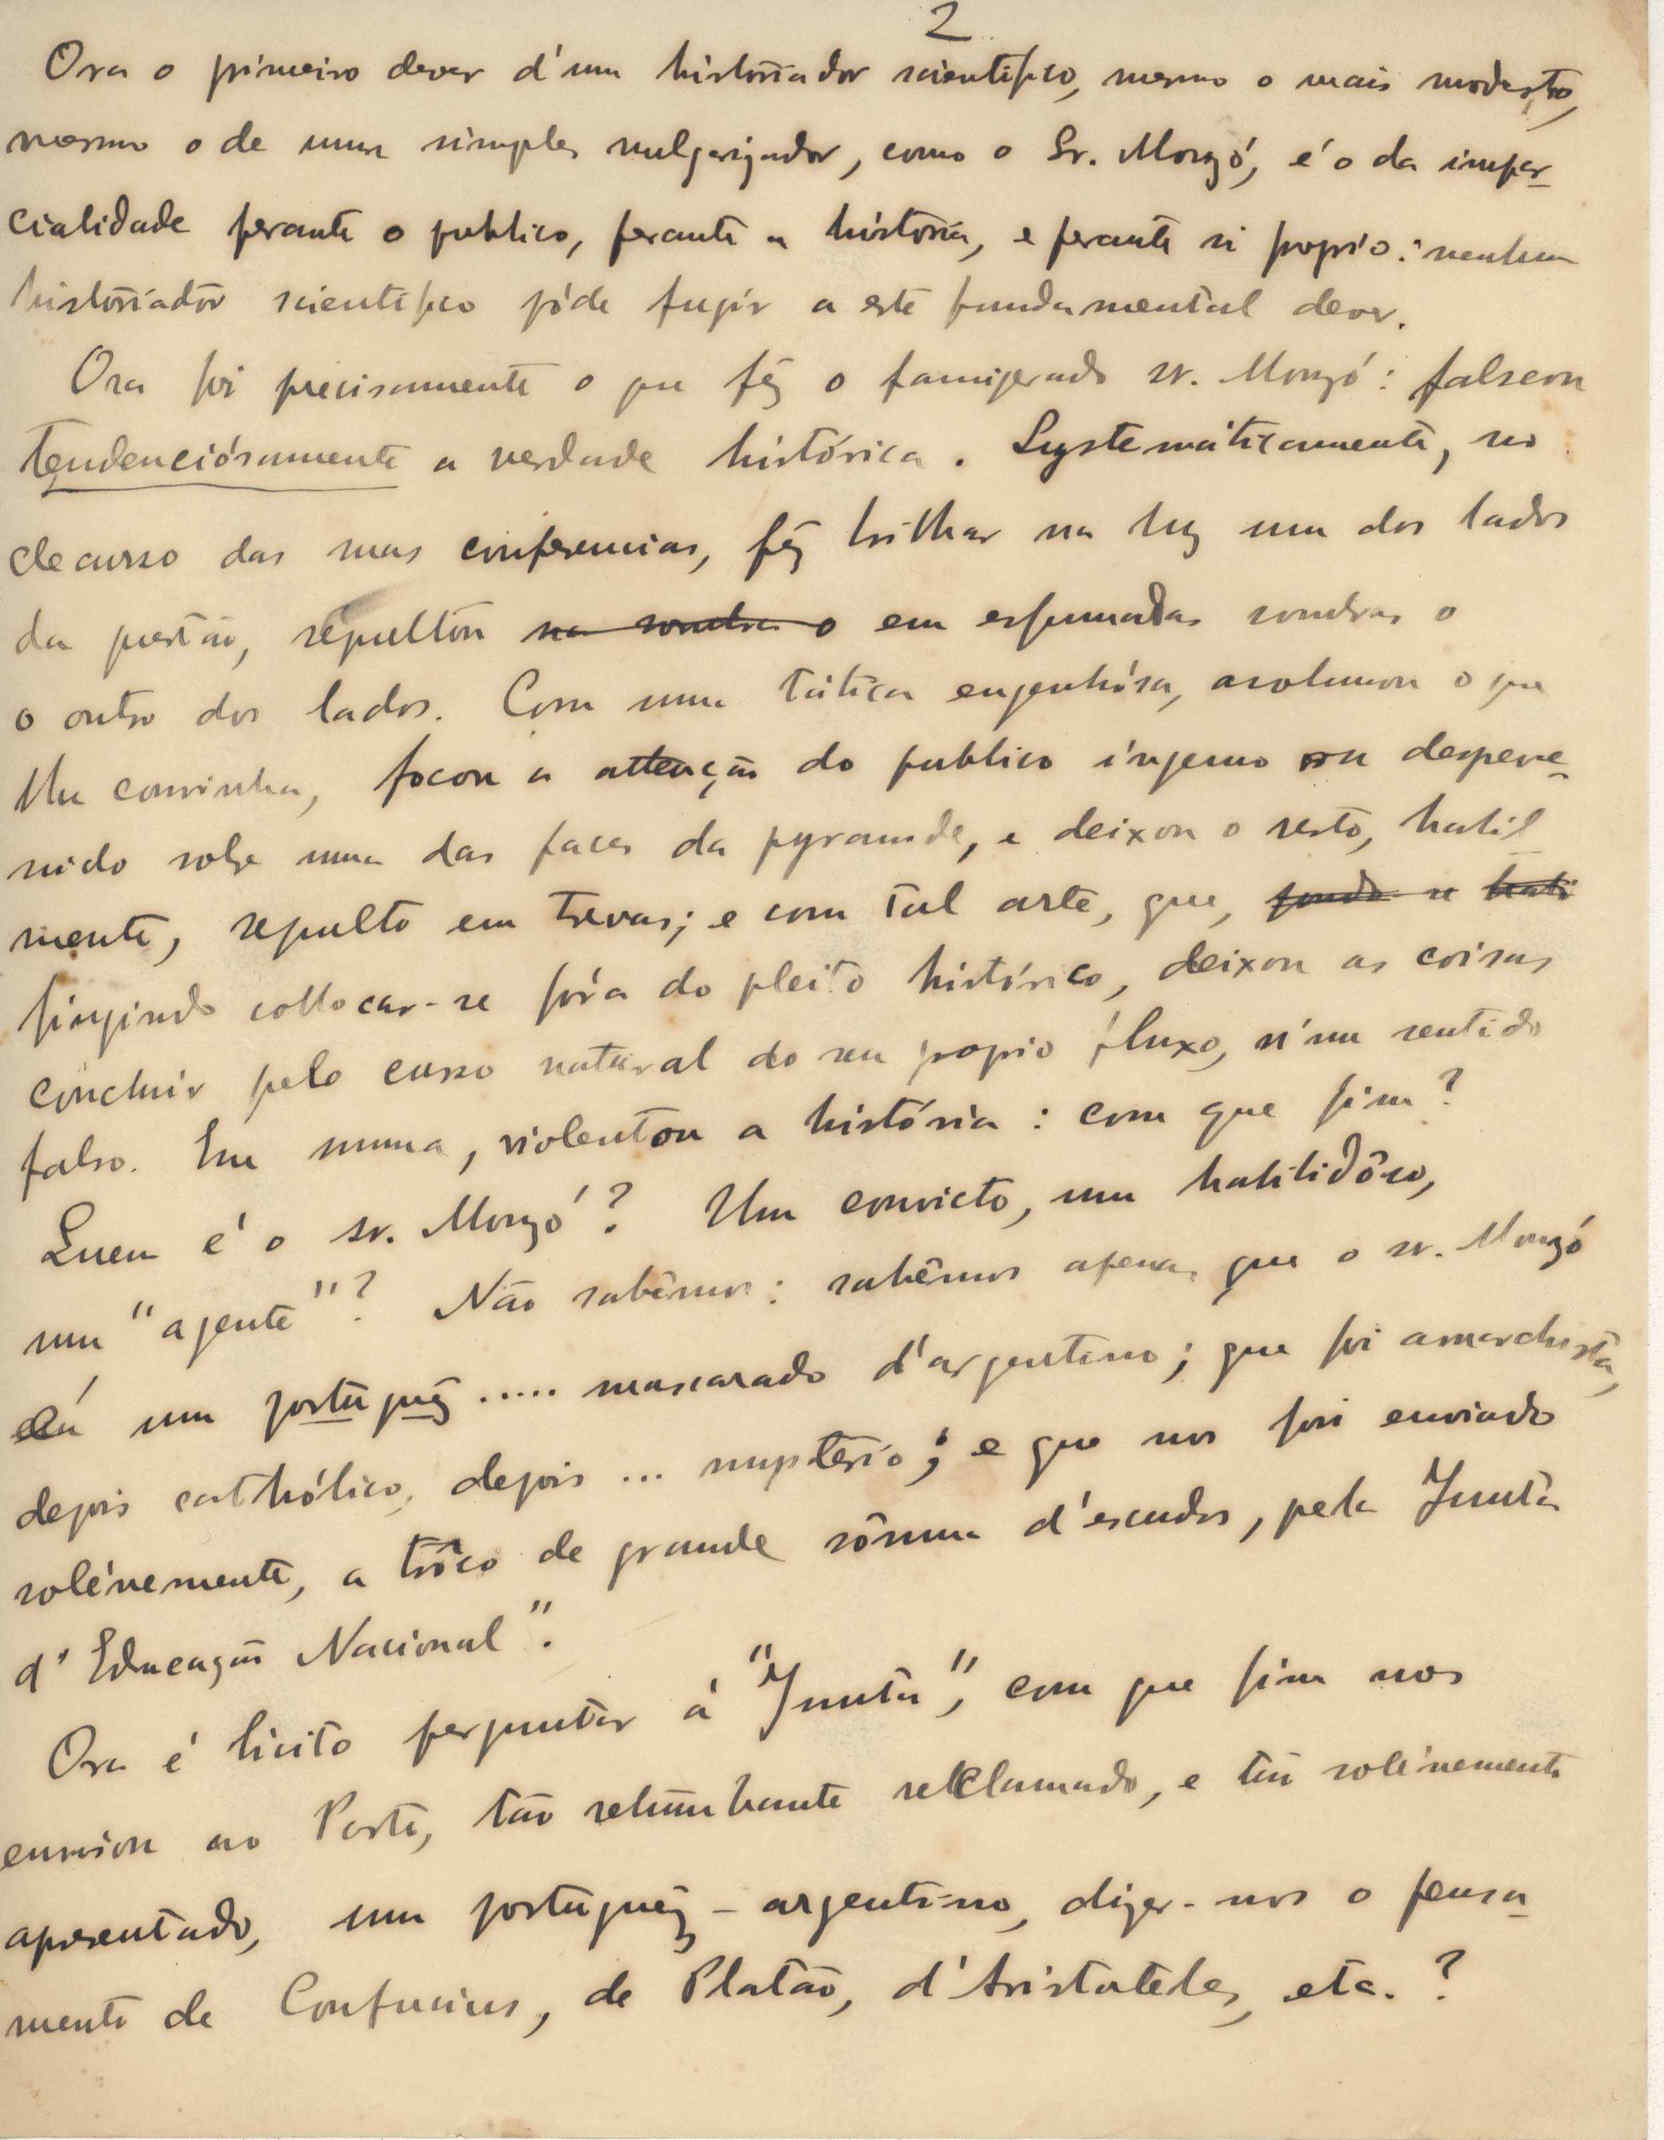 2
Ora o primeiro dever d'um historiador scientifico, mesmo o mais modesto,
mesmo o de um simples vulgarizador, como o Sr. Monzó, é o da impar-
cialidade perante o publico, perante a história, e perante si proprio: nenhum
historiador scientifico póde fugir a este fundamental dever.
Ora foi precisamente o que fêz o famigerado sr. Monzó: falseou
tendenciósamente a verdade histórica. Systemáticamente, no
decurso das suas conferencias, fêz brilhar na luz um dos lados
da questão, sepultou na sombra o em esfumadas sombras o
o outro dos lados. Com uma tática engenhósa, avolumou o que
lhe convinha, focou a attenção do publico ingenuo ou desperce-
nido sobre uma das faces da pyramide, e deixou o resto, habil-
mente, sepulto em trevas; e com tal arte, que,
fingindo collocar-se fóra do pleito histórico, deixou as coisas
concluir pelo curso natural do seu proprio fluxo, n'um sentido
falso. Em summa, violentou a história: com que fim?
Quem é o sr. Monzó? Um convicto, um habilidôso,
um "agente"? Não sabêmos: sabêmos apenas que o sr. Monzó
é um português ..... mascarado d'argentino; que foi anarchista,
depois cathólico, depois ... mystério; e que nos foi enviado
solénemente, a trôco de grande sômma d'escudos, pela Junta
d'Educação Nacional".
Ora é licito perguntar á "Junta", com que fim nos
enviou ao Porto, tão retumbante reclamado, e tão solénemente
apresentado, um português-argentino, dizer-nos o pensa-
mento de Confucius, de Platão, d'Aristoteles, etc.?